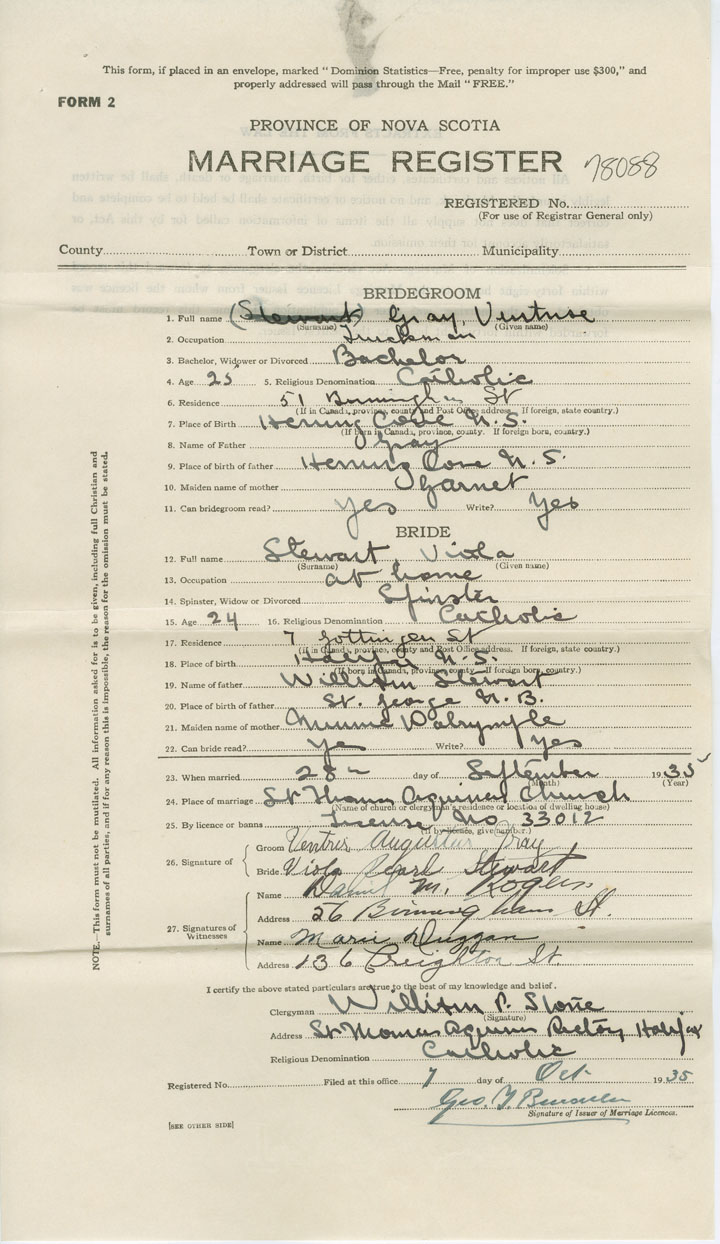 This form, if placed in an envelope, marked "Dominion Statistics—Free, penalty for improper use $300," and
properly addressed will pass through the Mail "FREE."
FORM 2
PROVINCE OF NOVA SCOTIA
MARRIAGE REGISTER 78088
REGISTERED No.
(For use of Registrar General only)
County Town or District Municipality
BRIDEGROOM
1. Full name (Stewart) Gray, Ventrise
(Surname) (Given name)
2. Occupation Truckman
3. Bachelor, Widower or Divorced Bachelor
4. Age 25 5. Religious Denomination Catholic
6. Residence 51 Birmingham St
(If in Canada, province, county and Post Office address. If foreign, state country.)
7. Place of Birth Herring Cove N.S.
(If born in Canada, province, county. If foreign born, country.)
8. Name of Father Gray
9. Place of birth of father Herring Cove N.S.
10. Maiden name of mother Garnet
11. Can bridegroom read? Yes Write? Yes
BRIDE
12. Full name Stewart, Viola
(Surname) (Given name)
13. Occupation at home
14. Spinster, Widow or Divorced Spinster
15. Age 24 16. Religious Denomination Catholic
17. Residence 7 Gottingen St
(If in Canada, province, county and Post Office address. If foreign, state country.)
18. Place of birth Halifax N.S.
(If born in Canada, province, county. If foreign born, country.)
19. Name of father William Stewart
20. Place of birth of father St. George N.B.
21. Maiden name of mother Minnie Dalrymple
22. Can bride read? Yes Write? Yes
23. When married 28 day of September 1935
(Month) (Year)
24. Place of marriage St Thomas Aquinas Church
(Name of church or clergyman's residence or location of dwelling house)
25. By licence or banns License No 33012
(If by licence, give number.)
26. Signature of
Groom Ventris Augustus Gray
Bride Viola Pearl Stewart
27. Signatures of Witnesses
Name Daniel M. Rogers
Address 56 Birmingham St.
Name Marie Duggan
Address 136 Creighton St
I certify the above stated particulars are true to the best of my knowledge and belief.
Clergyman William P. Stone
(Signature)
Address St Thomas Aquinas Rectory Halifax
Religious Denomination Catholic
Registered No. Filed at this office 7 day of Oct 1935
Geo. T.
Signature of Issuer of Marriage Licences.
[SEE OTHER SIDE]
NOTE.—This form must not be mutilated. All information asked for is to be given, including full Christian and
surnames of all parties, and if for any reason this is impossible, the reason for the omission must be stated.